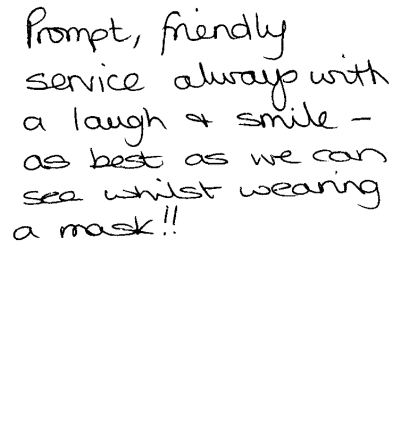 Prompt, friendly
service always with
a laugh & smile -
as best as we can
see whilst wearing
a mask!!